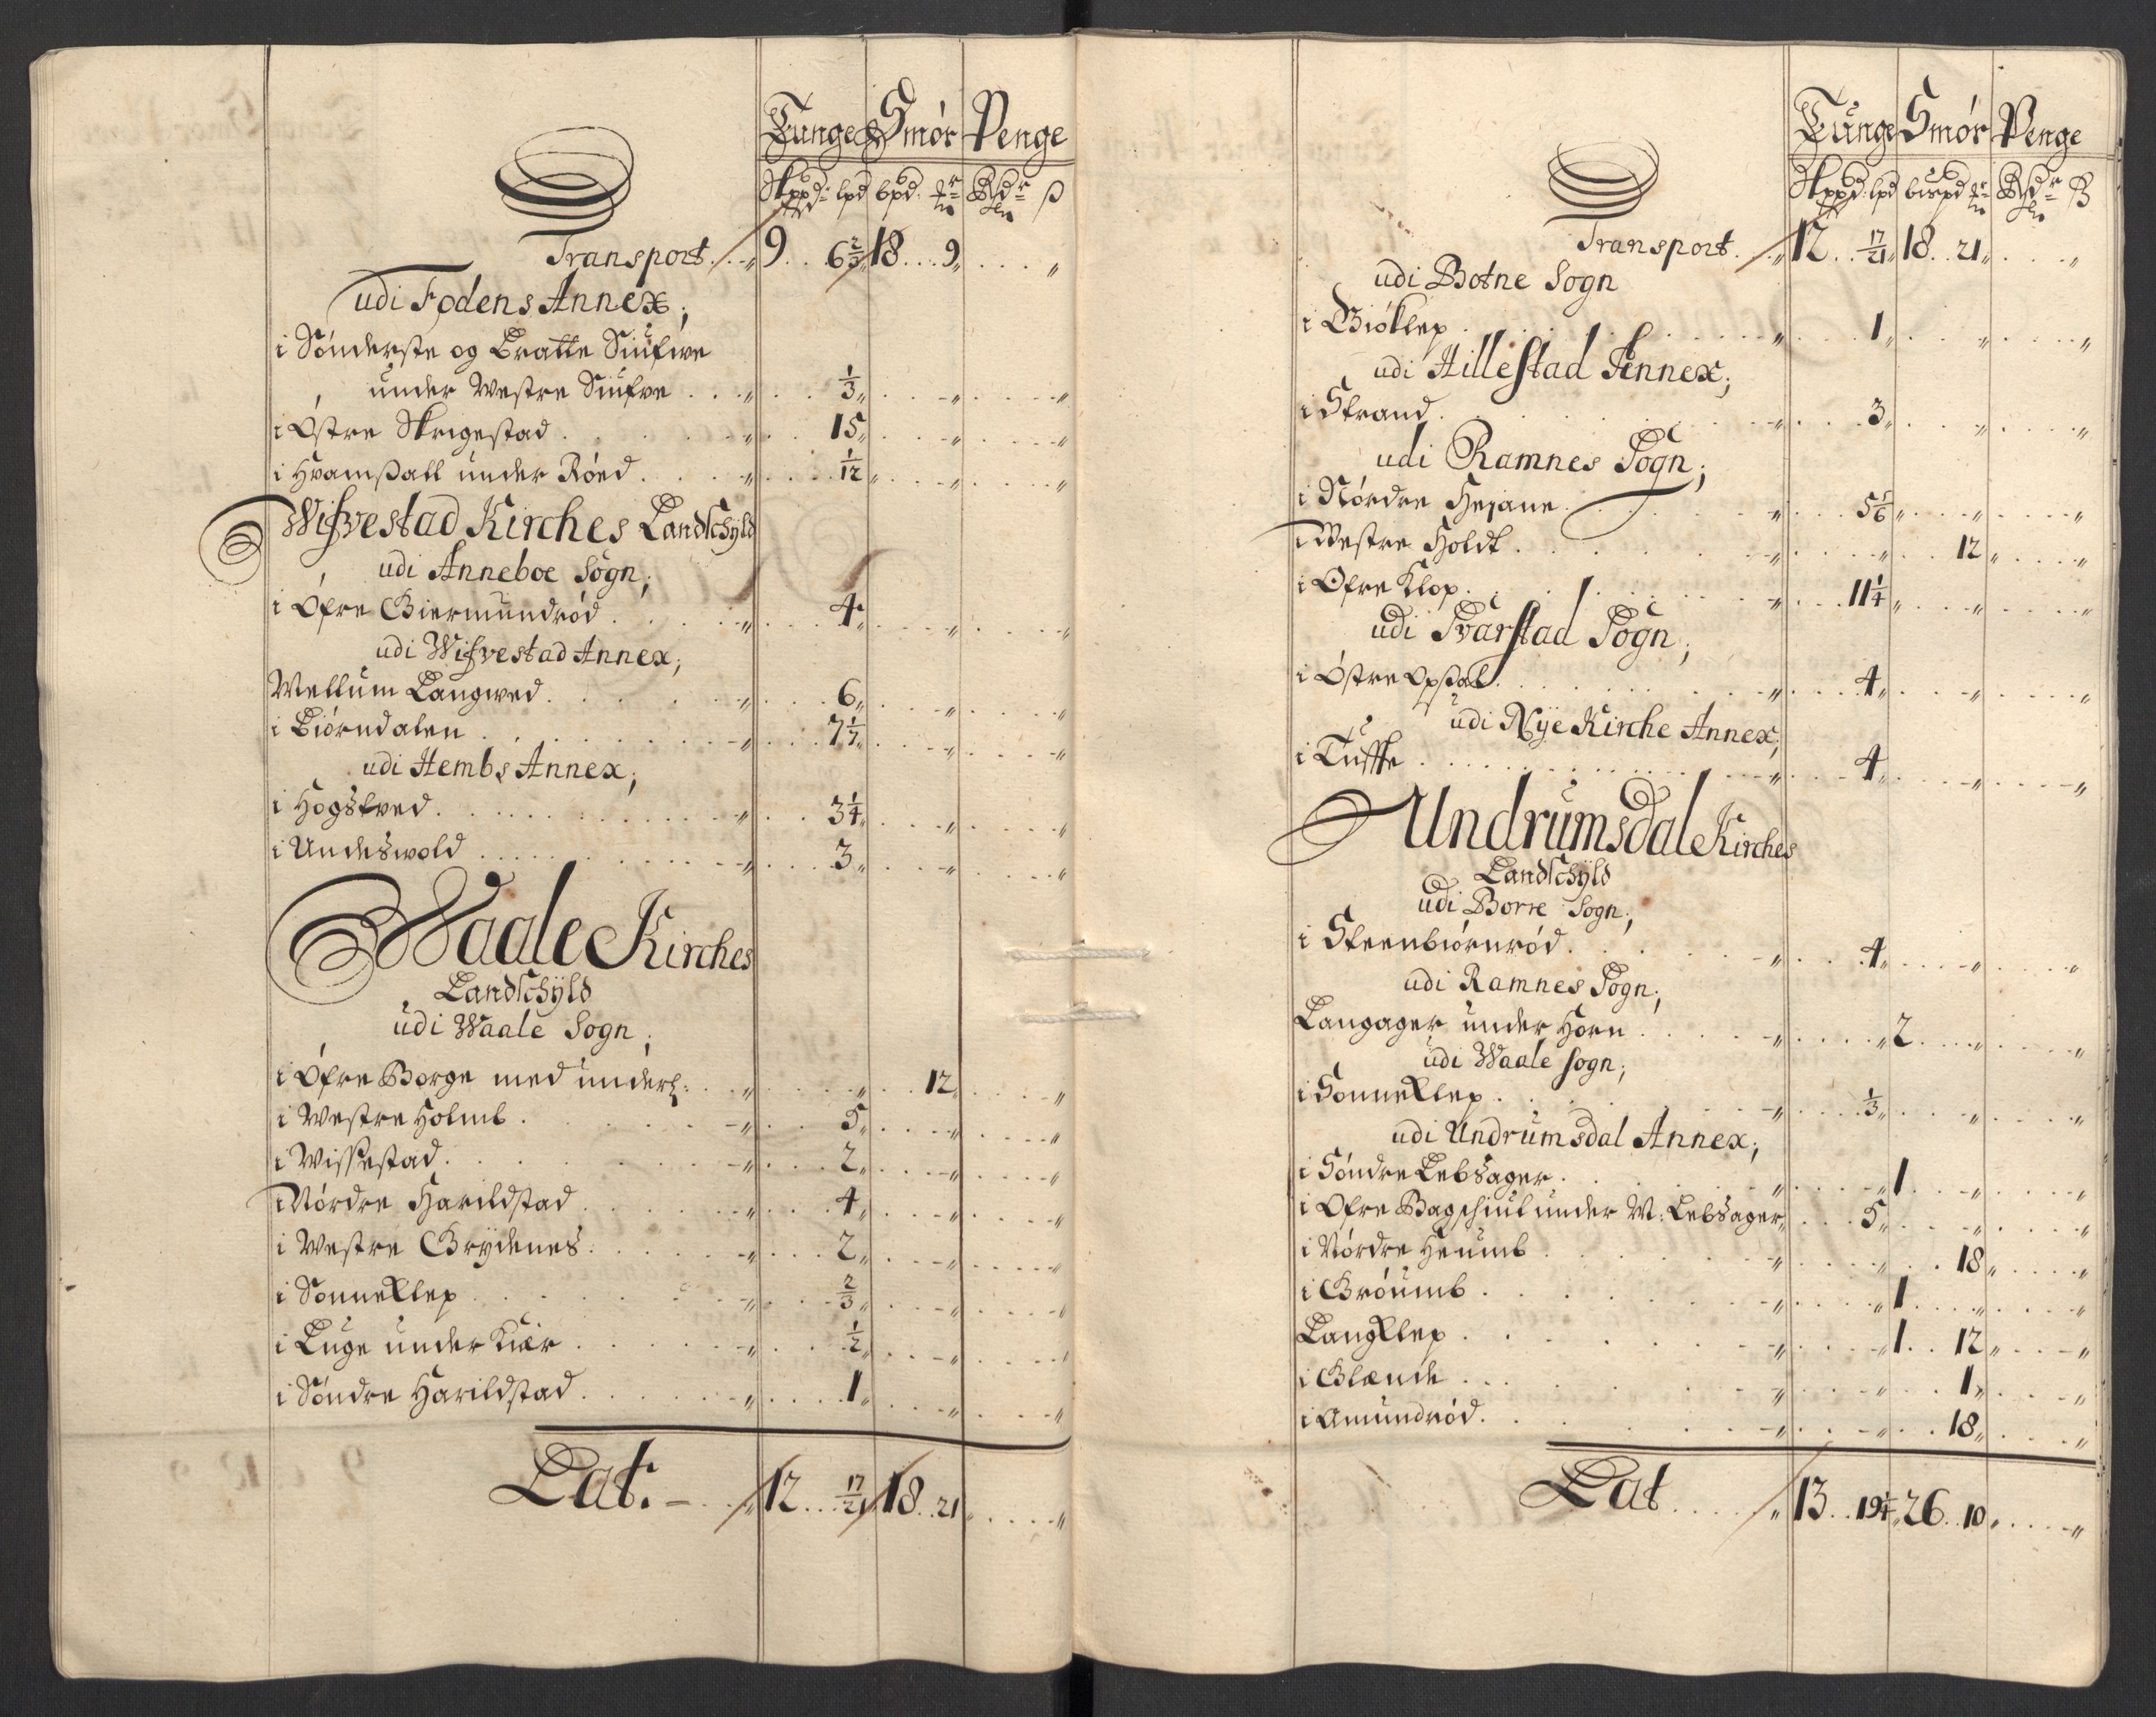 Tunge Smør Penge
Skppd: lpd bpd: mr Rdr ß
Transport . . 9 . . 6 2/3 18 . . . 9 . . . .
udi Fodens Annex;
i Sönderste og Bratte Siufwe
under Westre Siufve . . . 1/3
i Østre Skrigestad . . . 15
i Hvamsall under Röed . . . 1/12
Wifvestad Kirches Landschÿld
udi Anneboe Sogn;
i Öfre Giermundröd . . . 4
udi Wifvestad Annex;
Mellum Langwed . . . 6
i Biörndalen . . . 7 1/7
udi Hembs Annex;
i Hogstved . . . 3 1/4
i Undeswold . . . 3
Waale Kirches
Landschÿld
udi Waale Sogn;
i Öfre Borge med underl: . . . 12
i Westre Holmb . . . 5
i Wissestad . . . 2
i Nördre Harildstad . . . 4
i Westre Grydenes . . . 2
i Sonneklep . . . 2/3
i Luge under Kiær . . . 1/2
i Söndre Harildstad . . . 1
Lat: 12 . . . 17/21 18 . . 21 . . . .
Tunge Smör Penge
Skppd: lpd bispd mr Rdr ß
Transport . . 12 . . 17/21 18 . . 21 . . .
udi Botne Sogn
i Giöklep . . . 1
udi Hillestad Annex;
i Strand . . . 3
udi Ramnes Sogn;
i Nördre Hejane . . . 5 1/6
i Westre Holdt . . . 12
i Ofre Klop . . . 11 1/4
udi Svarstad Sogn;
i Östre Opsal . . . 4
udi Nÿe Kirche Annex;
i Tufte . . . 4
Undrumsdal Kirches
Landschÿld
udi Borre Sogn;
i Steenbiörnröd . . . 4
udi Ramnes Sogn;
Langager under Horn . . . 2
udi Waale sogn;
i Sonneklep . . . 1/3
udi Undrumsdal Annex;
i Söndre Lebsager . . . 1
i Ofre Bagschiul under W: Lebsager . . 5
i Nördre Heumb . . . 18
i Gröumb . . . 1
Langklep . . . 1 . . 12
i Glende . . . 1
i Amundröd . . . 18
Lat . . . 13 . . 19 1/4 26 . . 10 . . . .